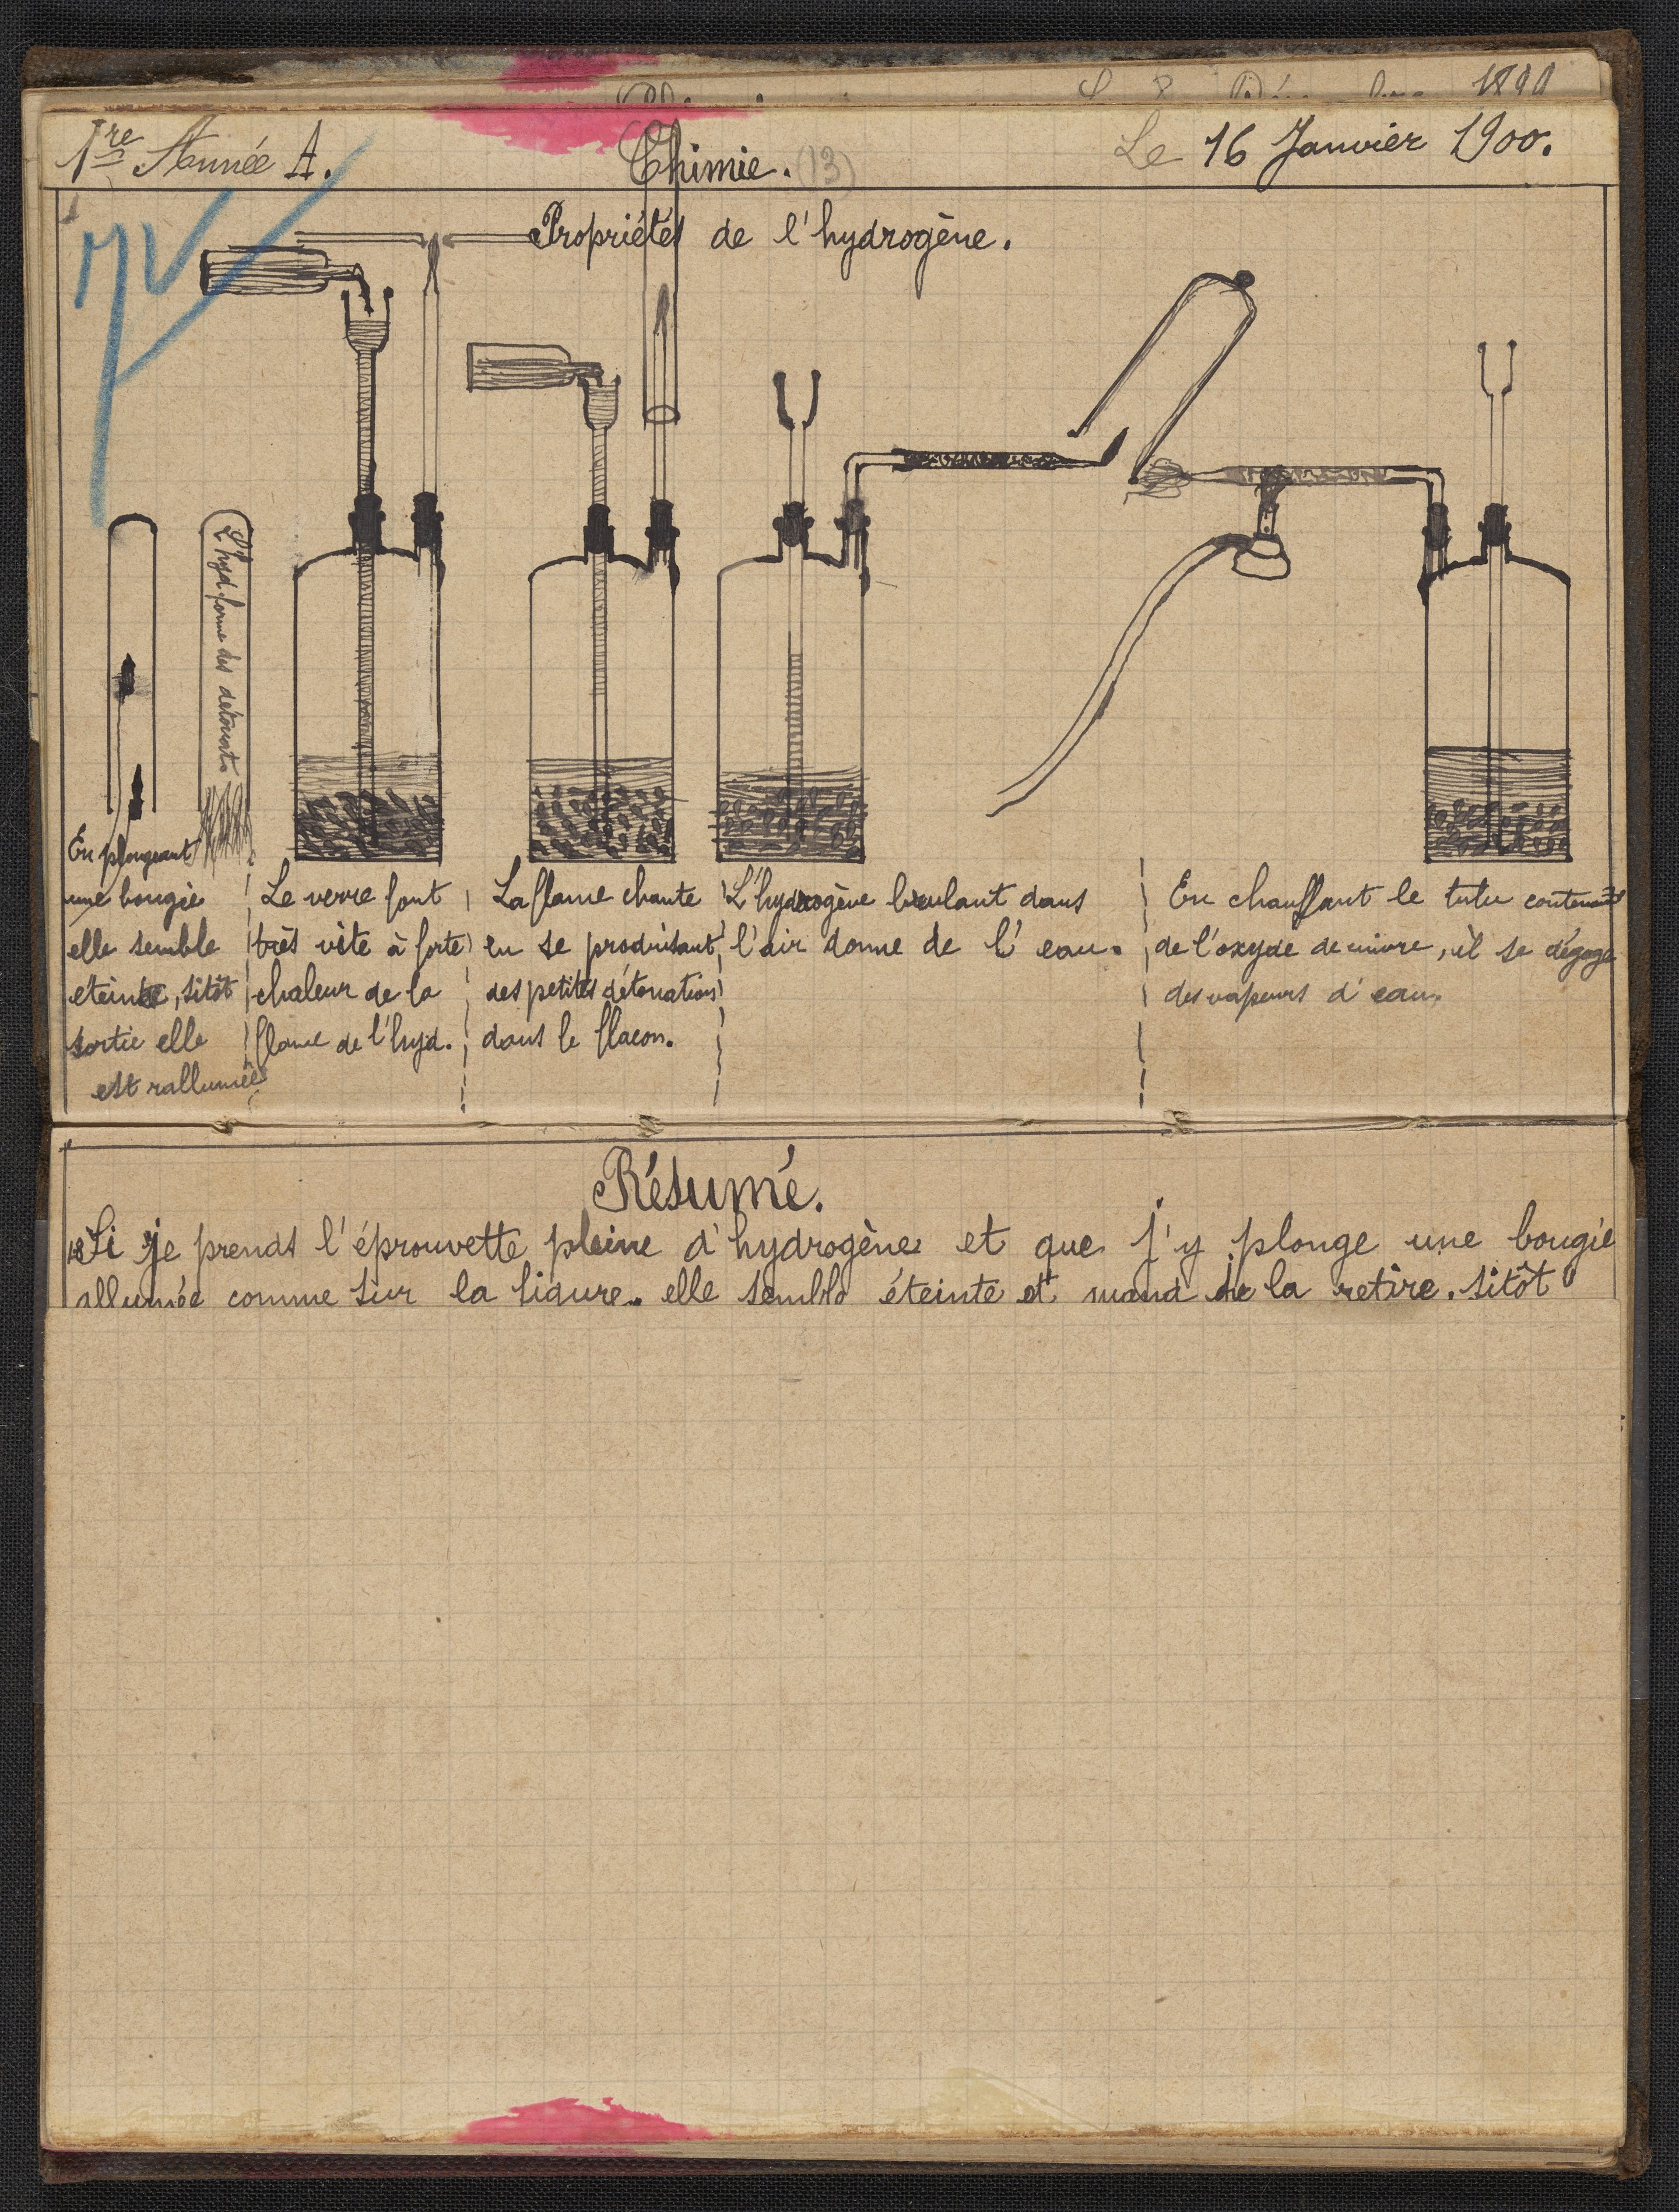 1re Année A.
Chimie. (13)
Le 16 Janvier 1900.
Propriétés de l'hydrogène.
L'hyd. forme des détonat.
En plongeant
une bougie
elle semble
eteinte, sitôt
sortie elle
est rallumée
Le verre font
très vite à forte
chaleur de la
flame de l'hyd.
La flame chante
en se produisant
des petites détonations
dans le flacon.
L'hydrogène brulant dans
l'air donne de l'eau.
En chauffant le tube contenant
de l'oxyde de cuivre, il se dégage
des vapeurs d'eau,
Résumé.
Si je prends l'éprouvette pleine d'hydrogène et que j'y plonge une bougie
allumée comme sur la figure, elle semble éteinte et quand je la retire, sitôt